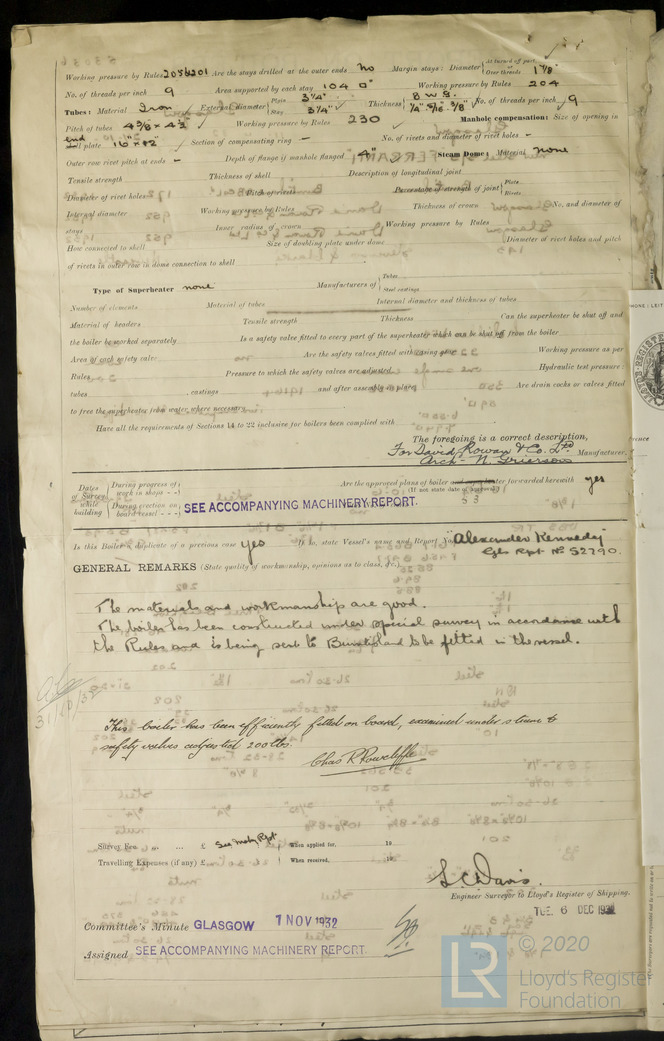 Working pressure by Rules 205 & 201 Are the stays drilled at the outer ends No Margin stays: Diameter { At turned off part, Over threads 1 7/8"
No. of threads per inch 9 Area supported by each stay 104 □" Working pressure by Rules 204
Tubes: Material Iron External diameter { Plain 3 1/4" Stay 3 1/4" Thickness { 8 W.G. 1/4" 5/16 3/8" No. of threads per inch 9
Pitch of tubes 4 5/8 x 4 1/2 Working pressure by Rules 230 Manhole compensation: Size of opening in
end shell plate 16" x 12" Section of compensating ring - No. of rivets and diameter of rivet holes -
Outer row rivet pitch at ends - Depth of flange if manhole flanged 4" Steam Dome: Material none
Tensile strength Thickness of shell Description of longitudinal joint
Diameter of rivet holes Pitch of rivets Percentage of strength of joint { Plate Rivets
Internal diameter Working pressure by Rules Thickness of crown No. and diameter of
stays Inner radius of crown Working pressure by Rules
How connected to shell Size of doubling plate under dome Diameter of rivet holes and pitch
of rivets in outer row in dome connection to shell
Type of Superheater none Manufacturers of { Tubes Steel castings
Number of elements Material of tubes Internal diameter and thickness of tubes
Material of headers Tensile strength Thickness Can the superheater be shut off and
the boiler be worked separately Is a safety valve fitted to every part of the superheater which can be shut off from the boiler
Area of each safety valve Are the safety valves fitted with easing gear Working pressure as per
Rules Pressure to which the safety valves are adjusted Hydraulic test pressure:
tubes castings and after assembly in place Are drain cocks or valves fitted
to free the superheater from water where necessary
Have all the requirements of Sections 14 to 22 inclusive for boilers been complied with
The foregoing is a correct description,
For David Rowan & Co. Ltd. Manufacturer.
Arch. N. Grierson
Dates of Survey while building { During progress of work in shops - - Are the approved plans of boiler and superheater forwarded herewith yes
(If not state date of approval.)
During erection on board vessel - - - SEE ACCOMPANYING MACHINERY REPORT.
Is this Boiler a duplicate of a previous case yes If so, state Vessel's name and Report No. "Alexander Kennedy"
Gls Rpt No 52790.
GENERAL REMARKS (State quality of workmanship, opinions as to class, &c.)
The materials and workmanship are good.
The boiler has been constructed under special survey in accordance with
the Rules and is being sent to Burntisland to be fitted in the vessel.
31/10/32
This boiler has been efficiently fitted on board, examined under steam &
safety valves adjusted 200 lbs.
Chas R Rowcliffe
Survey Fee £ See Mchy Rpt. When applied for, 19
Travelling Expenses (if any) £ When received, 19
L C Davis.
Engineer Surveyor to Lloyd's Register of Shipping.
TUE. 6 DEC 1932
Committee's Minute GLASGOW 1 NOV 1932
Assigned SEE ACCOMPANYING MACHINERY REPORT.
LR © 2020
Lloyd's Register
Foundation